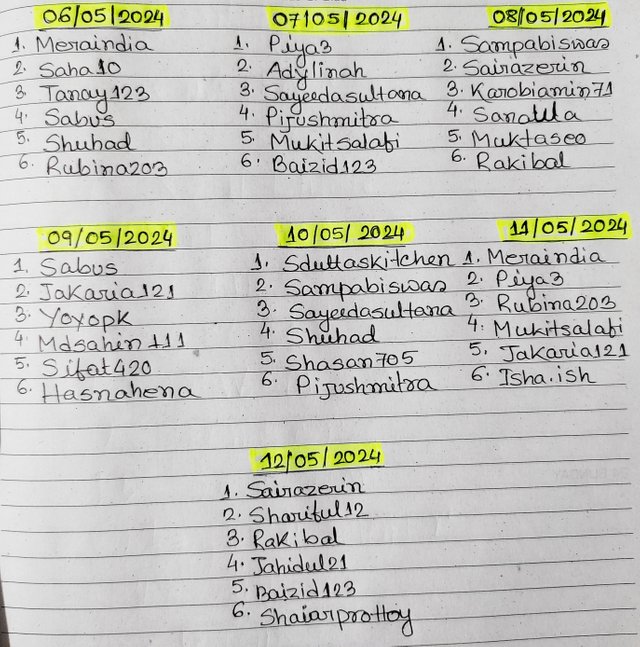 06/05/2024
1. Meraindia
2. Saha10
3. Tanay123
4. Sabus
5. Shuhad
6. Rubina203
07/05/2024
1. Piya3
2. Adylinah
3. Sayeedasultana
4. Pijushmitra
5. Mukitsalafi
6. Baizid123
08/05/2024
1. Sampabiswas
2. Sairazerin
3. Karobiamin71
4. Sanaulla
5. Muktaseo
6. Rakibal
09/05/2024
1. Sabus
2. Jakaria121
3. Yoyopk
4. Mdsahin111
5. Sifat420
6. Hasnahena
10/05/2024
1. Sduttaskitchen
2. Sampabiswas
3. Sayeedasultana
4. Shuhad
5. Shasan705
6. Pijushmitra
11/05/2024
1. Meraindia
2. Piya3
3. Rubina203
4. Mukitsalafi
5. Jakaria121
6. Isha.ish
12/05/2024
1. Sairazerin
2. Shariful12
3. Rakibal
4. Jahidul21
5. Baizid123
6. Shaiarprottoy